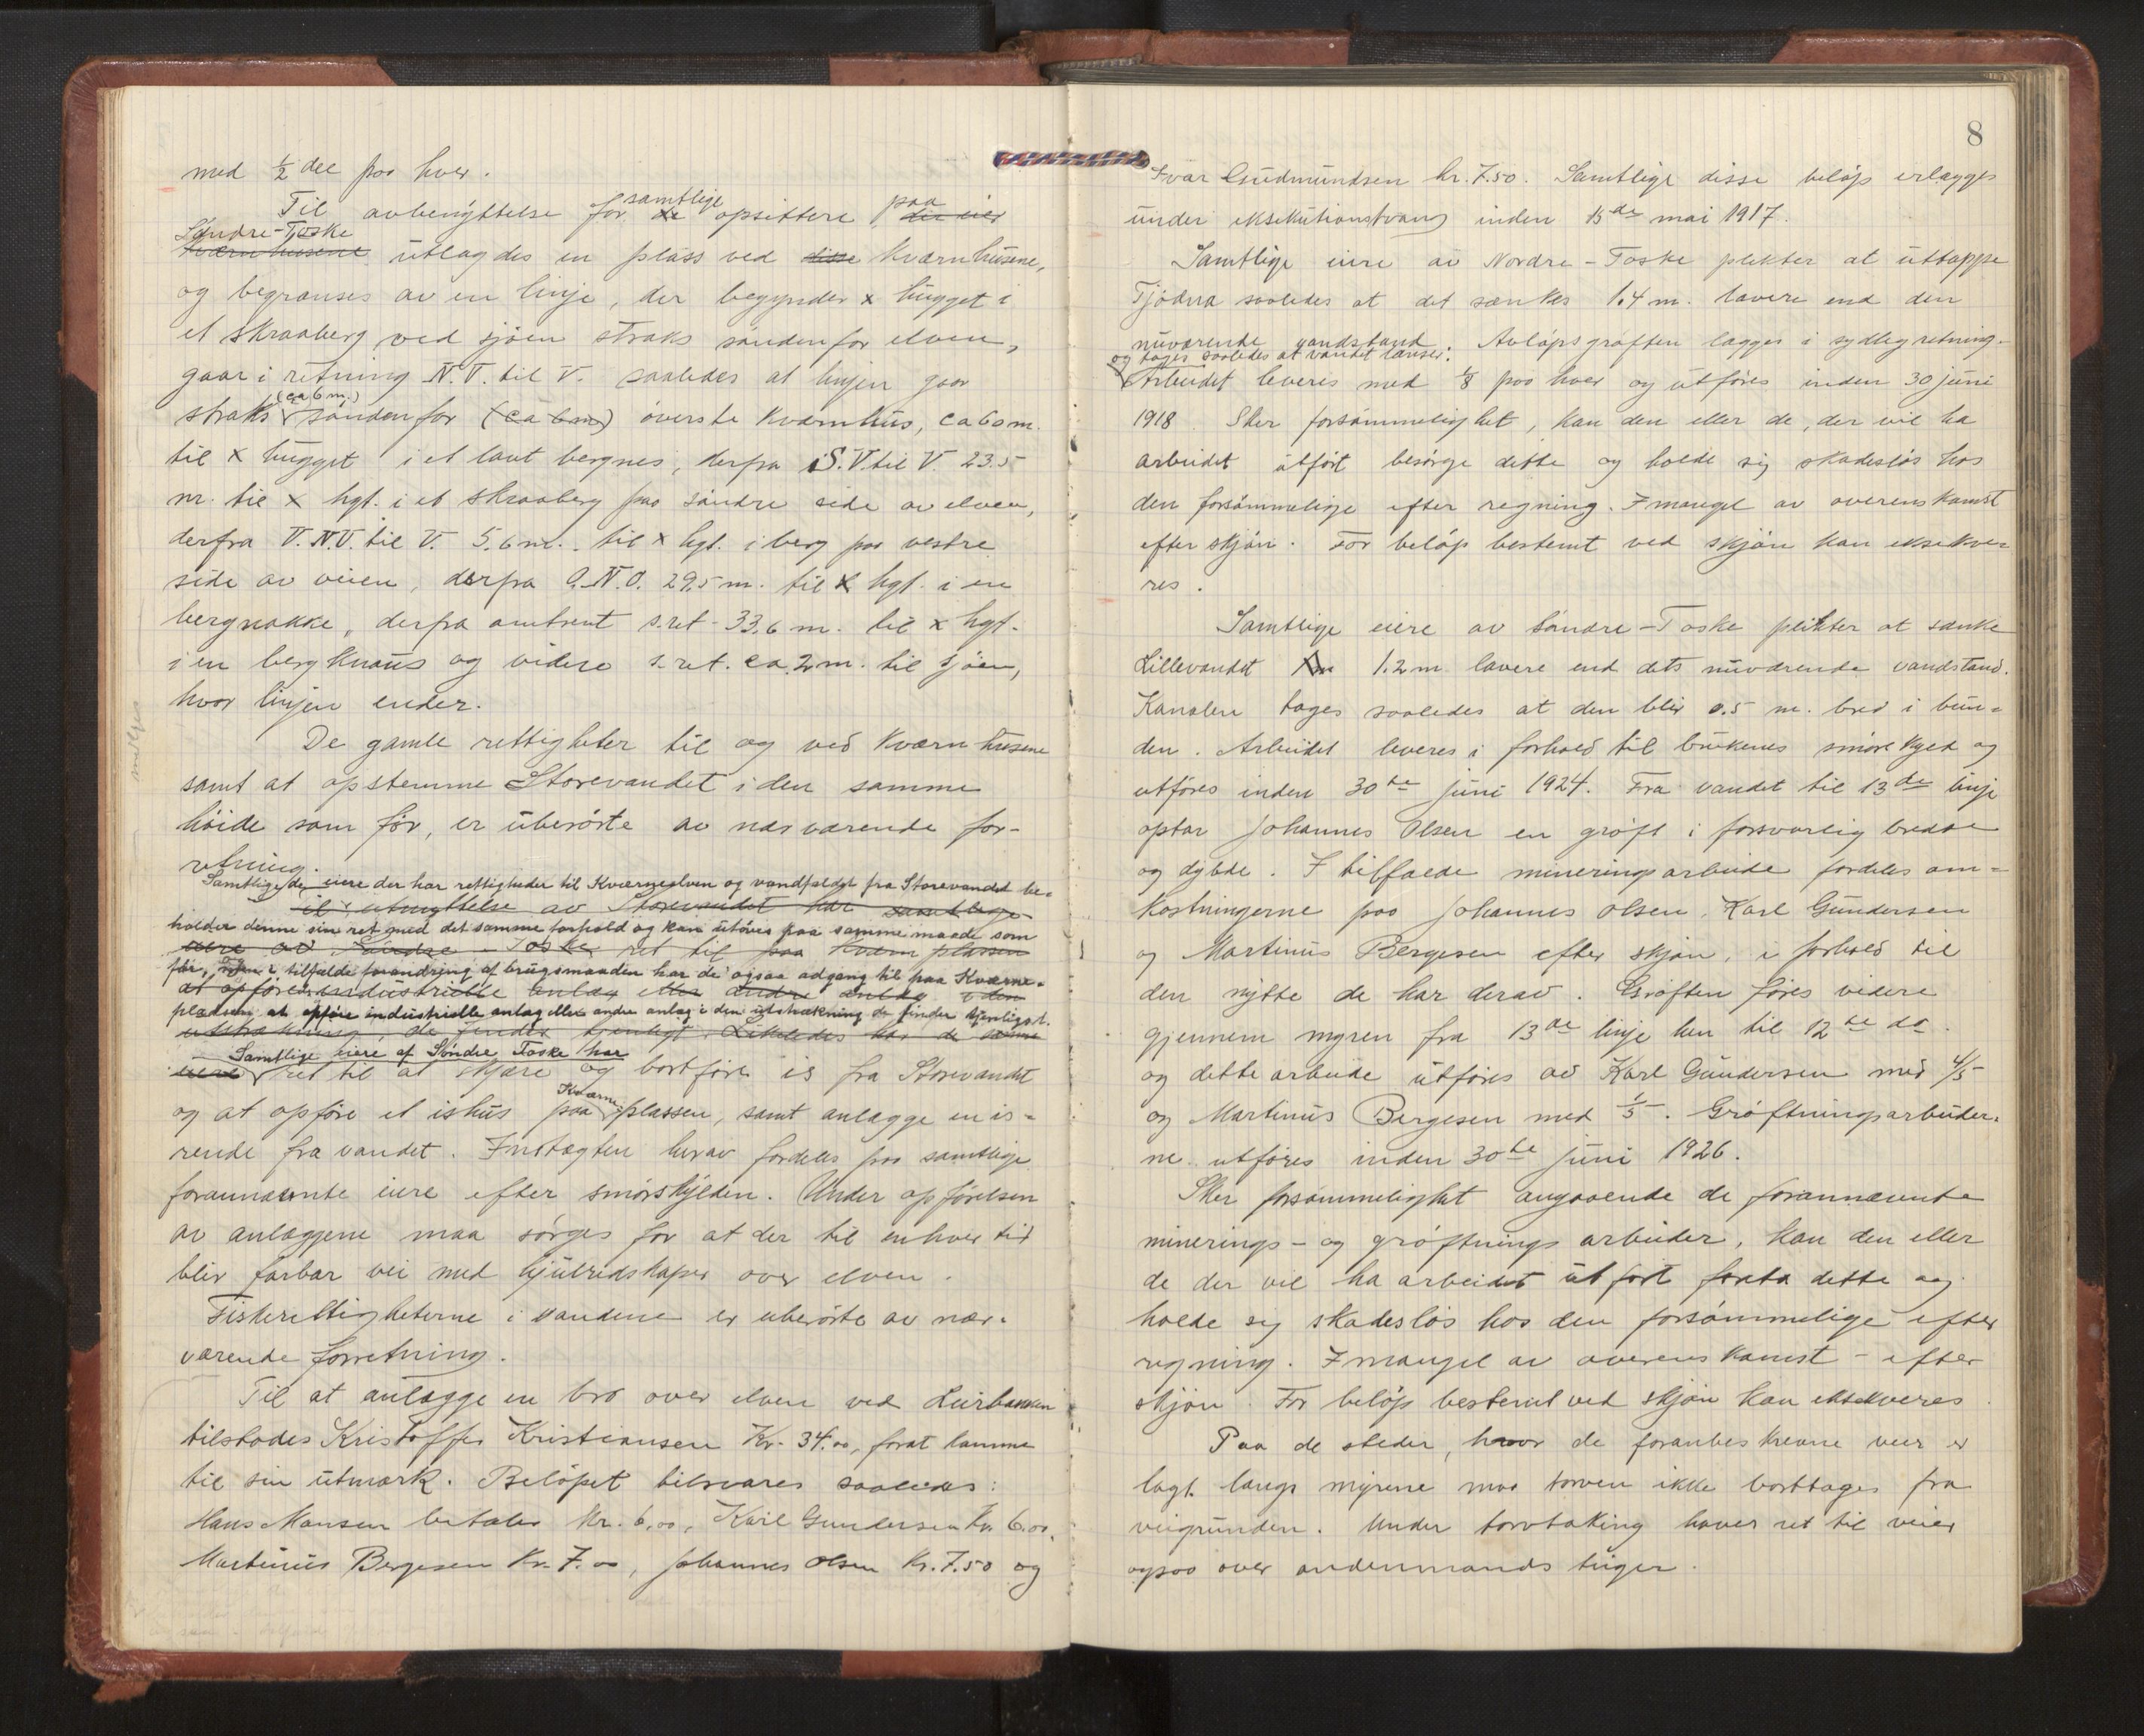 med ½ del paa hver.
Til avbenyttelse for samtlige opsittere paa
Søndre-Toske
Kværnhusene utlagdes en plass ved disse Kværnhusene,
og begrænses av en linje, der begynder x hugget i
et skraaberg ved sjøen straks søndenfor elven,
gaar i retning N.V. til V. saaledes at linjen gaar
straks (ca 6 m.) søndenfor (ca 6 m) øverste Kværnhus, ca 60 m.
til x hugget i et lavt bergnes, derfra i S.V. til V. 23.5
m. til x hgt. i et skraaberg paa søndre side av elven,
derfra V.N.V. til V. 5,6 m. til x hgt. i berg paa vestre
side av veien, derfra O.N.O. 29,5 m. til x hgt. i en
bergnakke, derfra omtrent s. ret - 33,6 m. til x hgt.
i en bergknaus og videre s. ret. ca. 2 m. til sjøen,
hvor linjen ender.
De gamle rettigheter til og ved Kværnhusene
samt at opstemme Storevandet i den samme
høide som før, er uberørte av nærværende for-
retning.
Samtlige de eiere der har rettigheder til Kværneelven og vandfaldet fra Storevandet be-
til utnyttelse av Storevandet har samtlige
holder denne sin ret med det samme forhold og kan utøves paa samme maade som
eiere av Søndre-Toske ret til paa Kværnplassen
før, i tilfælde forandring af brugsmaaden har de ogsaa adgang til paa Kværne-
at opføre industrielle anlæg eller andre anlæg i den
pladsen at opføre industrielle anlæg eller andre anlæg i den utstrækning de finder tjenligst.
utstrækning, de finder tjenligt. Likeledes har de samme
Samtlige eiere af Søndre Toske har
eiere ret til at skjære og bortføre is fra Storevandet
og at opføre et ishus paa Kværneplassen, samt anlægge en is-
rende fra vandet. Indtægten herav fordeles paa samtlige
forannævnte eiere efter smørskylden. Under opførelsen
av anlæggene maa sørges for at der til enhver tid
blir farbar vei med hjulredskaper over elven.
Fiskerettigheterne i vandene er uberørte av nær-
værende forretning.
Til at anlægge en bro over elven ved Leirbakken
tilstodes Kristoffer Kristiansen Kr. 34.00, forat komme
til sin utmark. Beløpet tilsvares saaledes:
Hans Monsen betaler Kr. 6,00, Karl Gundersen Kr 6.00,
Martinus Bergesen Kr. 7.00, Johannes Olsen Kr. 7.50 og
8
Ivar Gudmundsen kr. 7.50. Samtlige disse beløp erlægges
under eksekutionstvang inden 15de mai 1917.
Samtlige eiere av Nordre-Toske plikter at uttappe
Tjødna saaledes at det sænkes 1.4 m. lavere end den
nuværende vandstand. Avløpsgrøften lægges i sydlig retning.
og tages saaledes at vandet lænser.
Arbeidet leveres med ⅛ paa hver og utføres inden 30 juni
1918. Sker forsømmelighet, kan den eller de, der vil ha
arbeidet utført besørge dette og holde sig skadesløs hos
den forsømmelige efter regning. I mangel av overenskomst
efter skjøn. For beløp bestemt ved skjøn kan eksekve-
res.
Samtlige eiere av Søndre-Toske plikter at sænke
Lillevandet 1.2 m lavere end dets nuværende vandstand.
Kanalen tages saaledes at den blir 0.5 m. bred i bun-
den. Arbeidet leveres i forhold til brukenes smørskyld og
utføres inden 30te juni 1924. Fra vandet til 13de linje
optar Johannes Olsen en grøft i forsvarlig bredde
og dybde. I tilfælde mineringsarbeide fordeles om-
kostningerne paa Johannes Olsen, Karl Gundersen
og Martinus Bergesen efter skjøn, i forhold til
den nytte de har derav. Grøften føres videre
gjennem myren fra 13de linje hen til 12te do.
og dette arbeide utføres av Karl Gundersen med 4/5
og Martinus Bergesen med 1/5. Grøftningsarbeider-
ne utføres inden 30te juni 1926.
Sker forsømmelighet angaaende de forannævnte
minerings- og grøftningsarbeider, kan den eller
de der vil ha arbeidet utført foreta dette og
holde sig skadesløs hos den forsømmelige efter
regning. I mangel av overenskomst - efter
skjøn. For beløp bestemt ved skjøn kan eksekveres.
Paa de steder, hvor de foranbeskrevne veier er
lagt langs myrene maa torven ikke borttages fra
veigrunden. Under torvtaking haves ret til veier
ogsaa over andenmands teiger.